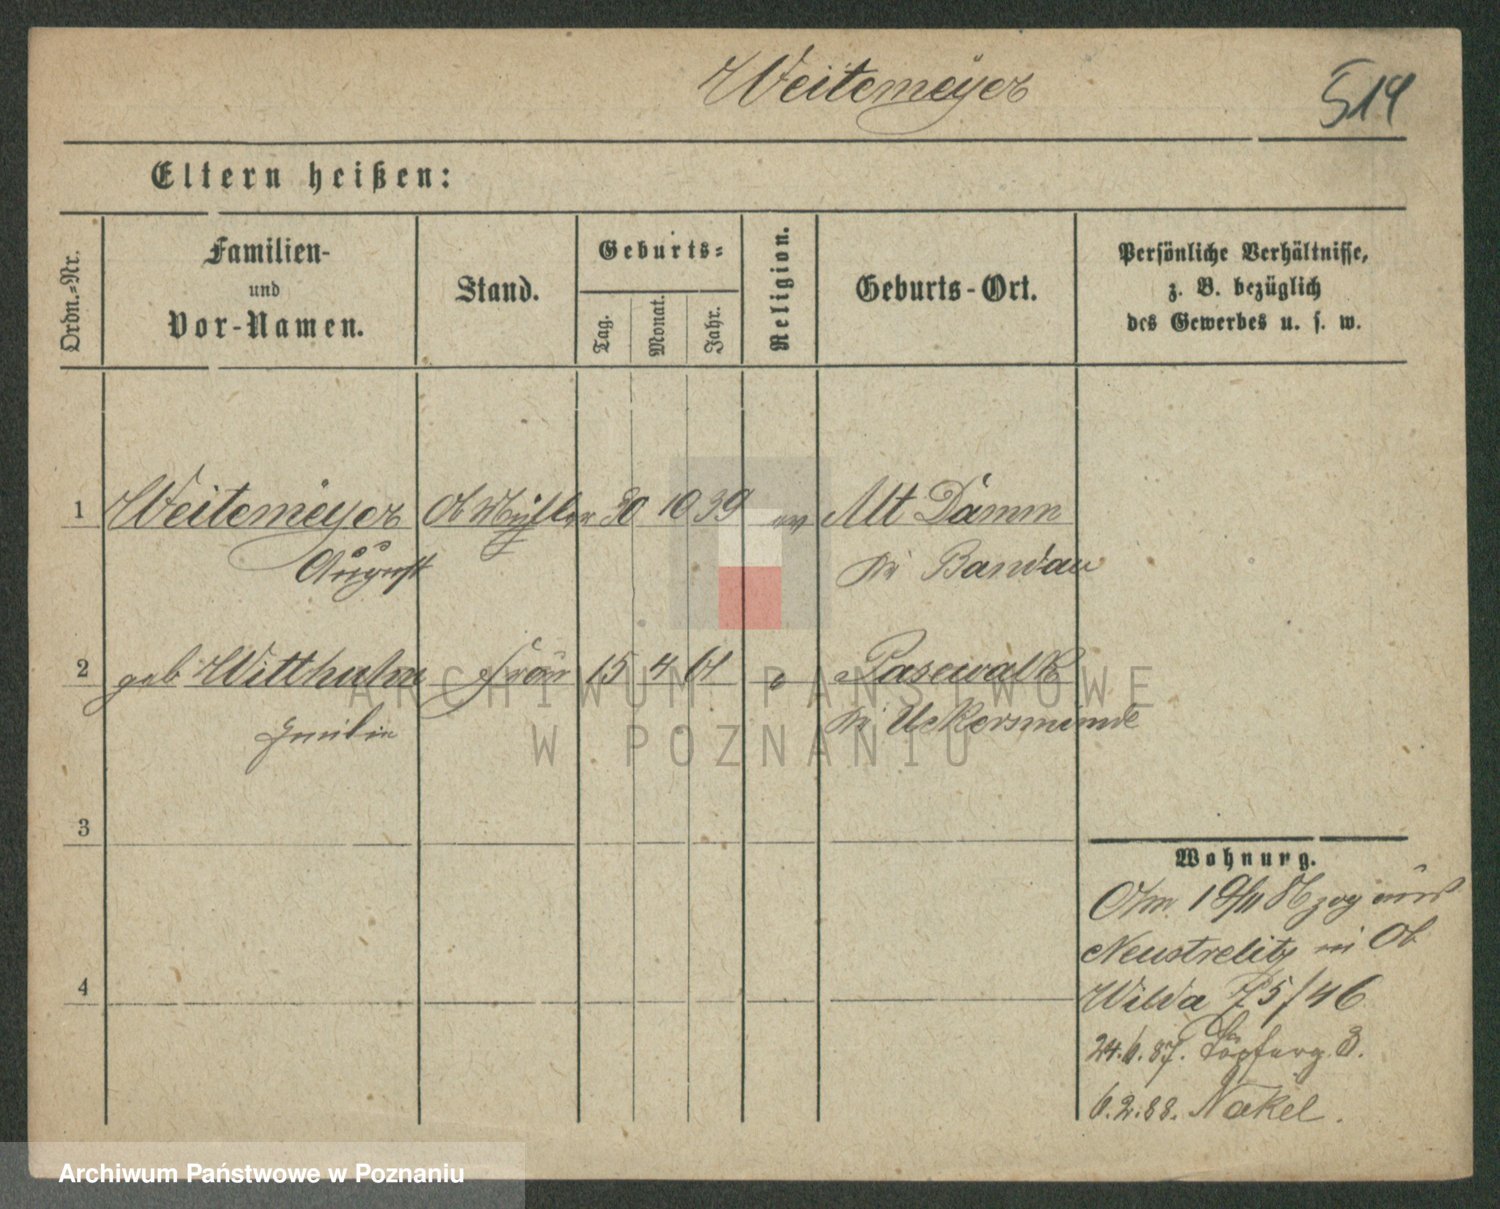 Weitemeyer 519
Eltern heißen:
Ordn.-Nr.
Familien-
und
Vor-Namen.
Stand.
Geburts-
Tag.
Monat.
Jahr.
Religion.
Geburts-Ort.
Persönliche Verhältnisse,
z. B. bezüglich
des Gewerbes u. s. w.
1 Weitemeyer 30 10 39 ev Alt Damm
August
2 geb Witthuhn Frau 15 4 61 e Pasewalk
Kr Uekermünde
Emilie
3
4
Wohnung.
Neustrelitz in Ob
Wilda 75/46
24.6.87. Töpferg. 3.
6.2.88. Nakel.
ARCHIWUM PAŃSTWOWE
W POZNANIU
Archiwum Państwowe w Poznaniu